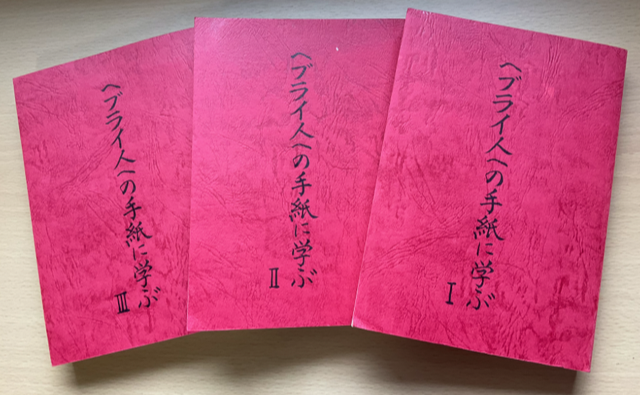 ヘブライ人への手紙に学ぶ
I
ヘブライ人への手紙に学ぶ
II
ヘブライ人への手紙に学ぶ
III